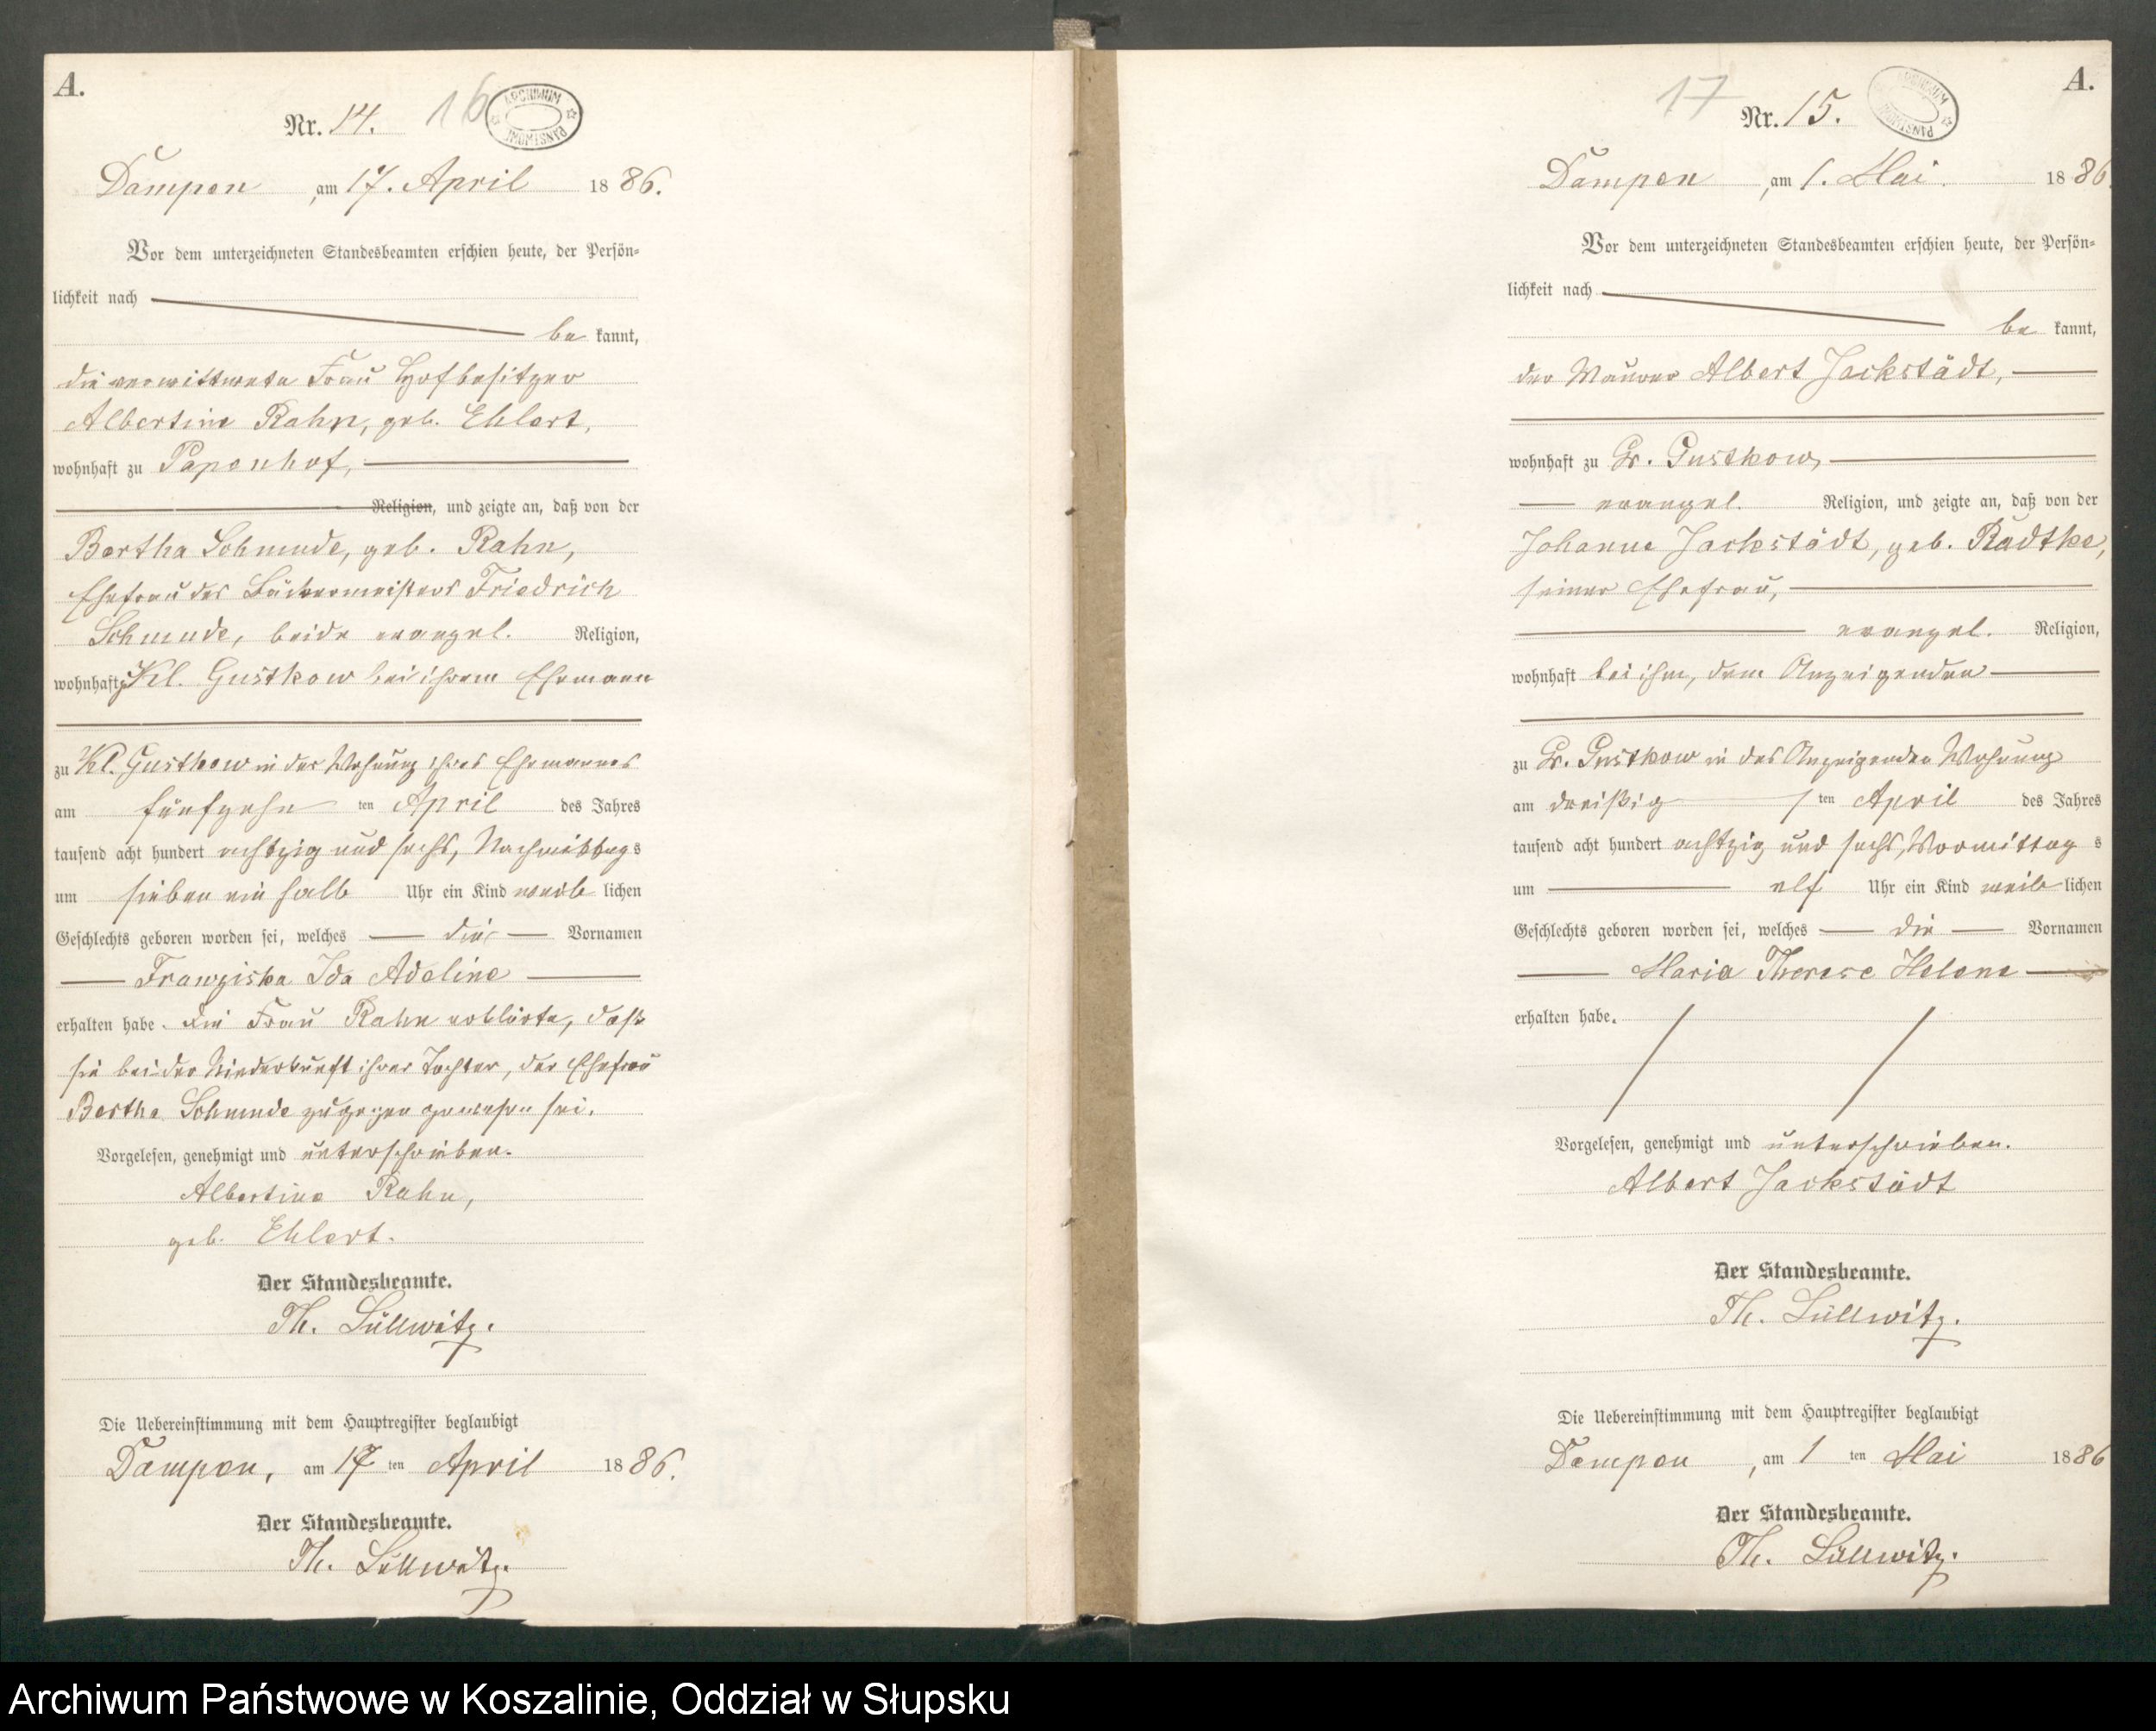 A.
Nr. 14. 16
ARCHIWUM PAŃSTWOWE
Dampen, am 17. April 1886.
Vor dem unterzeichneten Standesbeamten erschien heute, der Persön-
lichkeit nach
bekannt,
die verwittwete Frau Hofbesitzer
Albertine Rahn, geb. Ehlert,
wohnhaft zu Papenhof,
Religion, und zeigte an, daß von der
Bertha Schmude, geb. Rahn,
Ehefrau des Bäckermeisters Friedrich
Schmude, beide evangel. Religion,
wohnhaft zu Kl. Gustkow bei ihrem Ehemann
zu Kl. Gustkow in der Wohnung ihres Ehemannes
am fünfzehnten April des Jahres
tausend acht hundert achtzig und sechs, Nachmittags
um sieben ein halb Uhr ein Kind weiblichen
Geschlechts geboren worden sei, welches die Vornamen
Franziska Ida Adeline
erhalten habe. Die Frau Rahn erklärte, daß
sie bei der Niederkunft ihrer Tochter, der Ehefrau
Bertha Schmude zugegen gewesen sei.
Vorgelesen, genehmigt und unterschrieben.
Albertine Rahn,
geb. Ehlert.
Der Standesbeamte.
Th. Lüllwitz.
Die Uebereinstimmung mit dem Hauptregister beglaubigt
Dampen, am 17ten April 1886.
Der Standesbeamte.
Th. Lüllwitz.
A.
17 Nr. 15.
ARCHIWUM PAŃSTWOWE
Dampen, am 1. Mai. 1886
Vor dem unterzeichneten Standesbeamten erschien heute, der Persön-
lichkeit nach
bekannt,
der Maurer Albert Jackstädt,
wohnhaft zu Gr. Gustkow,
evangel. Religion, und zeigte an, daß von der
Johanne Jackstädt, geb. Radtke,
seiner Ehefrau,
evangel. Religion,
wohnhaft bei ihm, dem Anzeigenden
zu Gr. Gustkow in des Anzeigenden Wohnung
am dreißigten April des Jahres
tausend acht hundert achtzig und sechs, Vormittags
um elf Uhr ein Kind weiblichen
Geschlechts geboren worden sei, welches die Vornamen
Maria Therese Helene
erhalten habe.
Vorgelesen, genehmigt und unterschrieben.
Albert Jackstädt
Der Standesbeamte.
Th. Lüllwitz.
Die Uebereinstimmung mit dem Hauptregister beglaubigt
Dampen, am 1ten Mai 1886
Der Standesbeamte.
Th. Lüllwitz.
Archiwum Państwowe w Koszalinie, Oddział w Słupsku